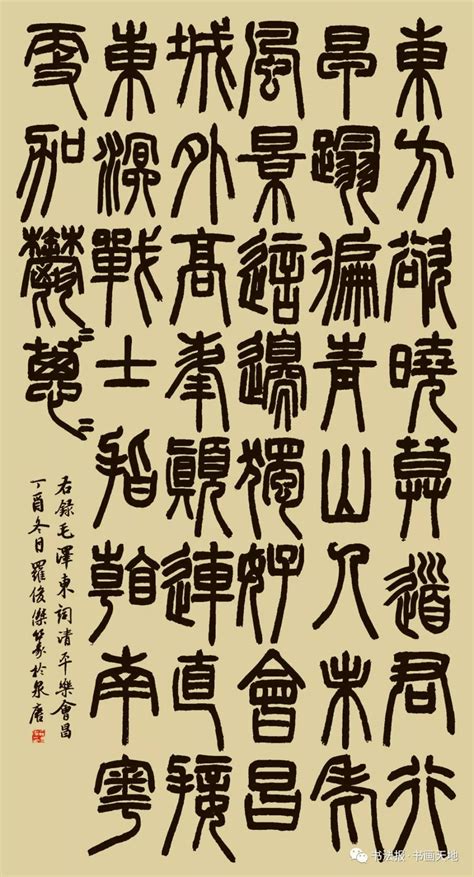 東方欲曉莫道君行
早蹋徧青山人未老
風景這邊獨好會昌
城外高峯顛連直接
東溟戰士指看南粵
更加鬱〻蔥〻
右錄毛澤東詞清平樂會昌
丁酉冬日羅俊傑篆於泉唐
书法报·书画天地